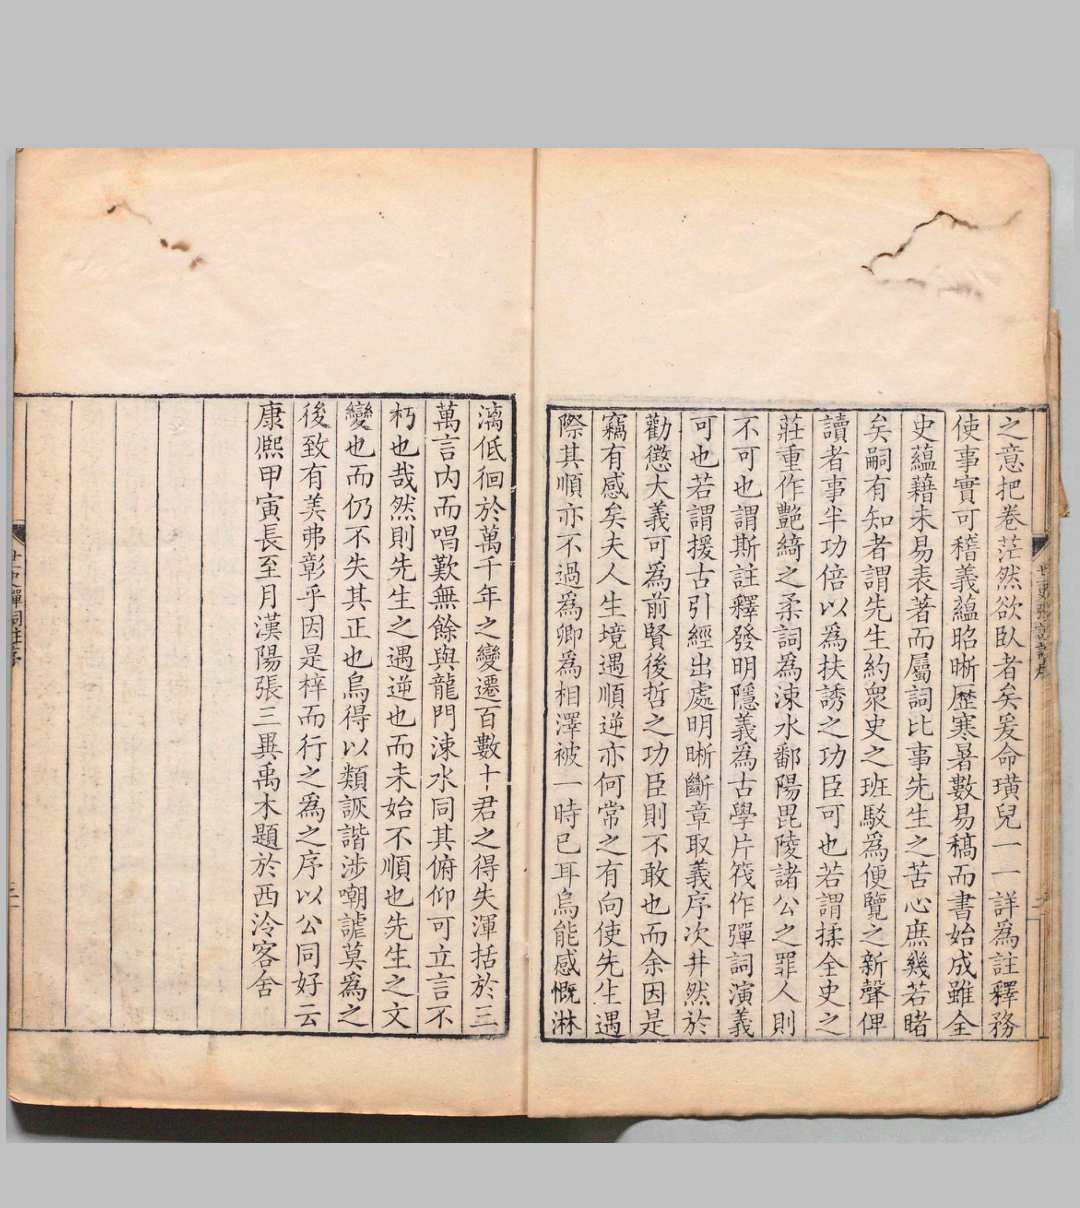 之意把卷茫然欲臥者矣爰命璜兒一一詳為註釋務
使事實可稽義蘊昭晰歷寒暑數易稿而書始成雖全
史蘊藉未易表著而屬詞比事先生之苦心庶幾若睹
矣嗣有知者謂先生約衆史之班駁爲便覽之新聲俾
讀者事半功倍以爲扶誘之功臣可也若謂揉全史之
莊重作艷綺之柔詞爲涑水鄱陽毘陵諸公之罪人則
不可也謂斯註釋發明隱義為古學片筏作彈詞演義
可也若謂援古引經出處明晰斷章取義序次井然於
勸懲大義可為前賢後哲之功臣則不敢也而余因是
竊有感矣夫人生境遇順逆亦何常之有向使先生遇
際其順亦不過爲卿爲相澤被一時已耳烏能感慨淋
漓低徊於萬千年之變遷百數十君之得失渾括於三
萬言內而唱歎無餘與龍門涑水同其俯仰可立言不
朽也哉然則先生之遇逆也而未始不順也先生之文
變也而仍不失其正也烏得以類詼諧涉嘲謔莫爲之
後致有美弗彰乎因是梓而行之爲之序以公同好云
康熙甲寅長至月漢陽張三異禹木題於西泠客舍
廿一史彈詞註序
三